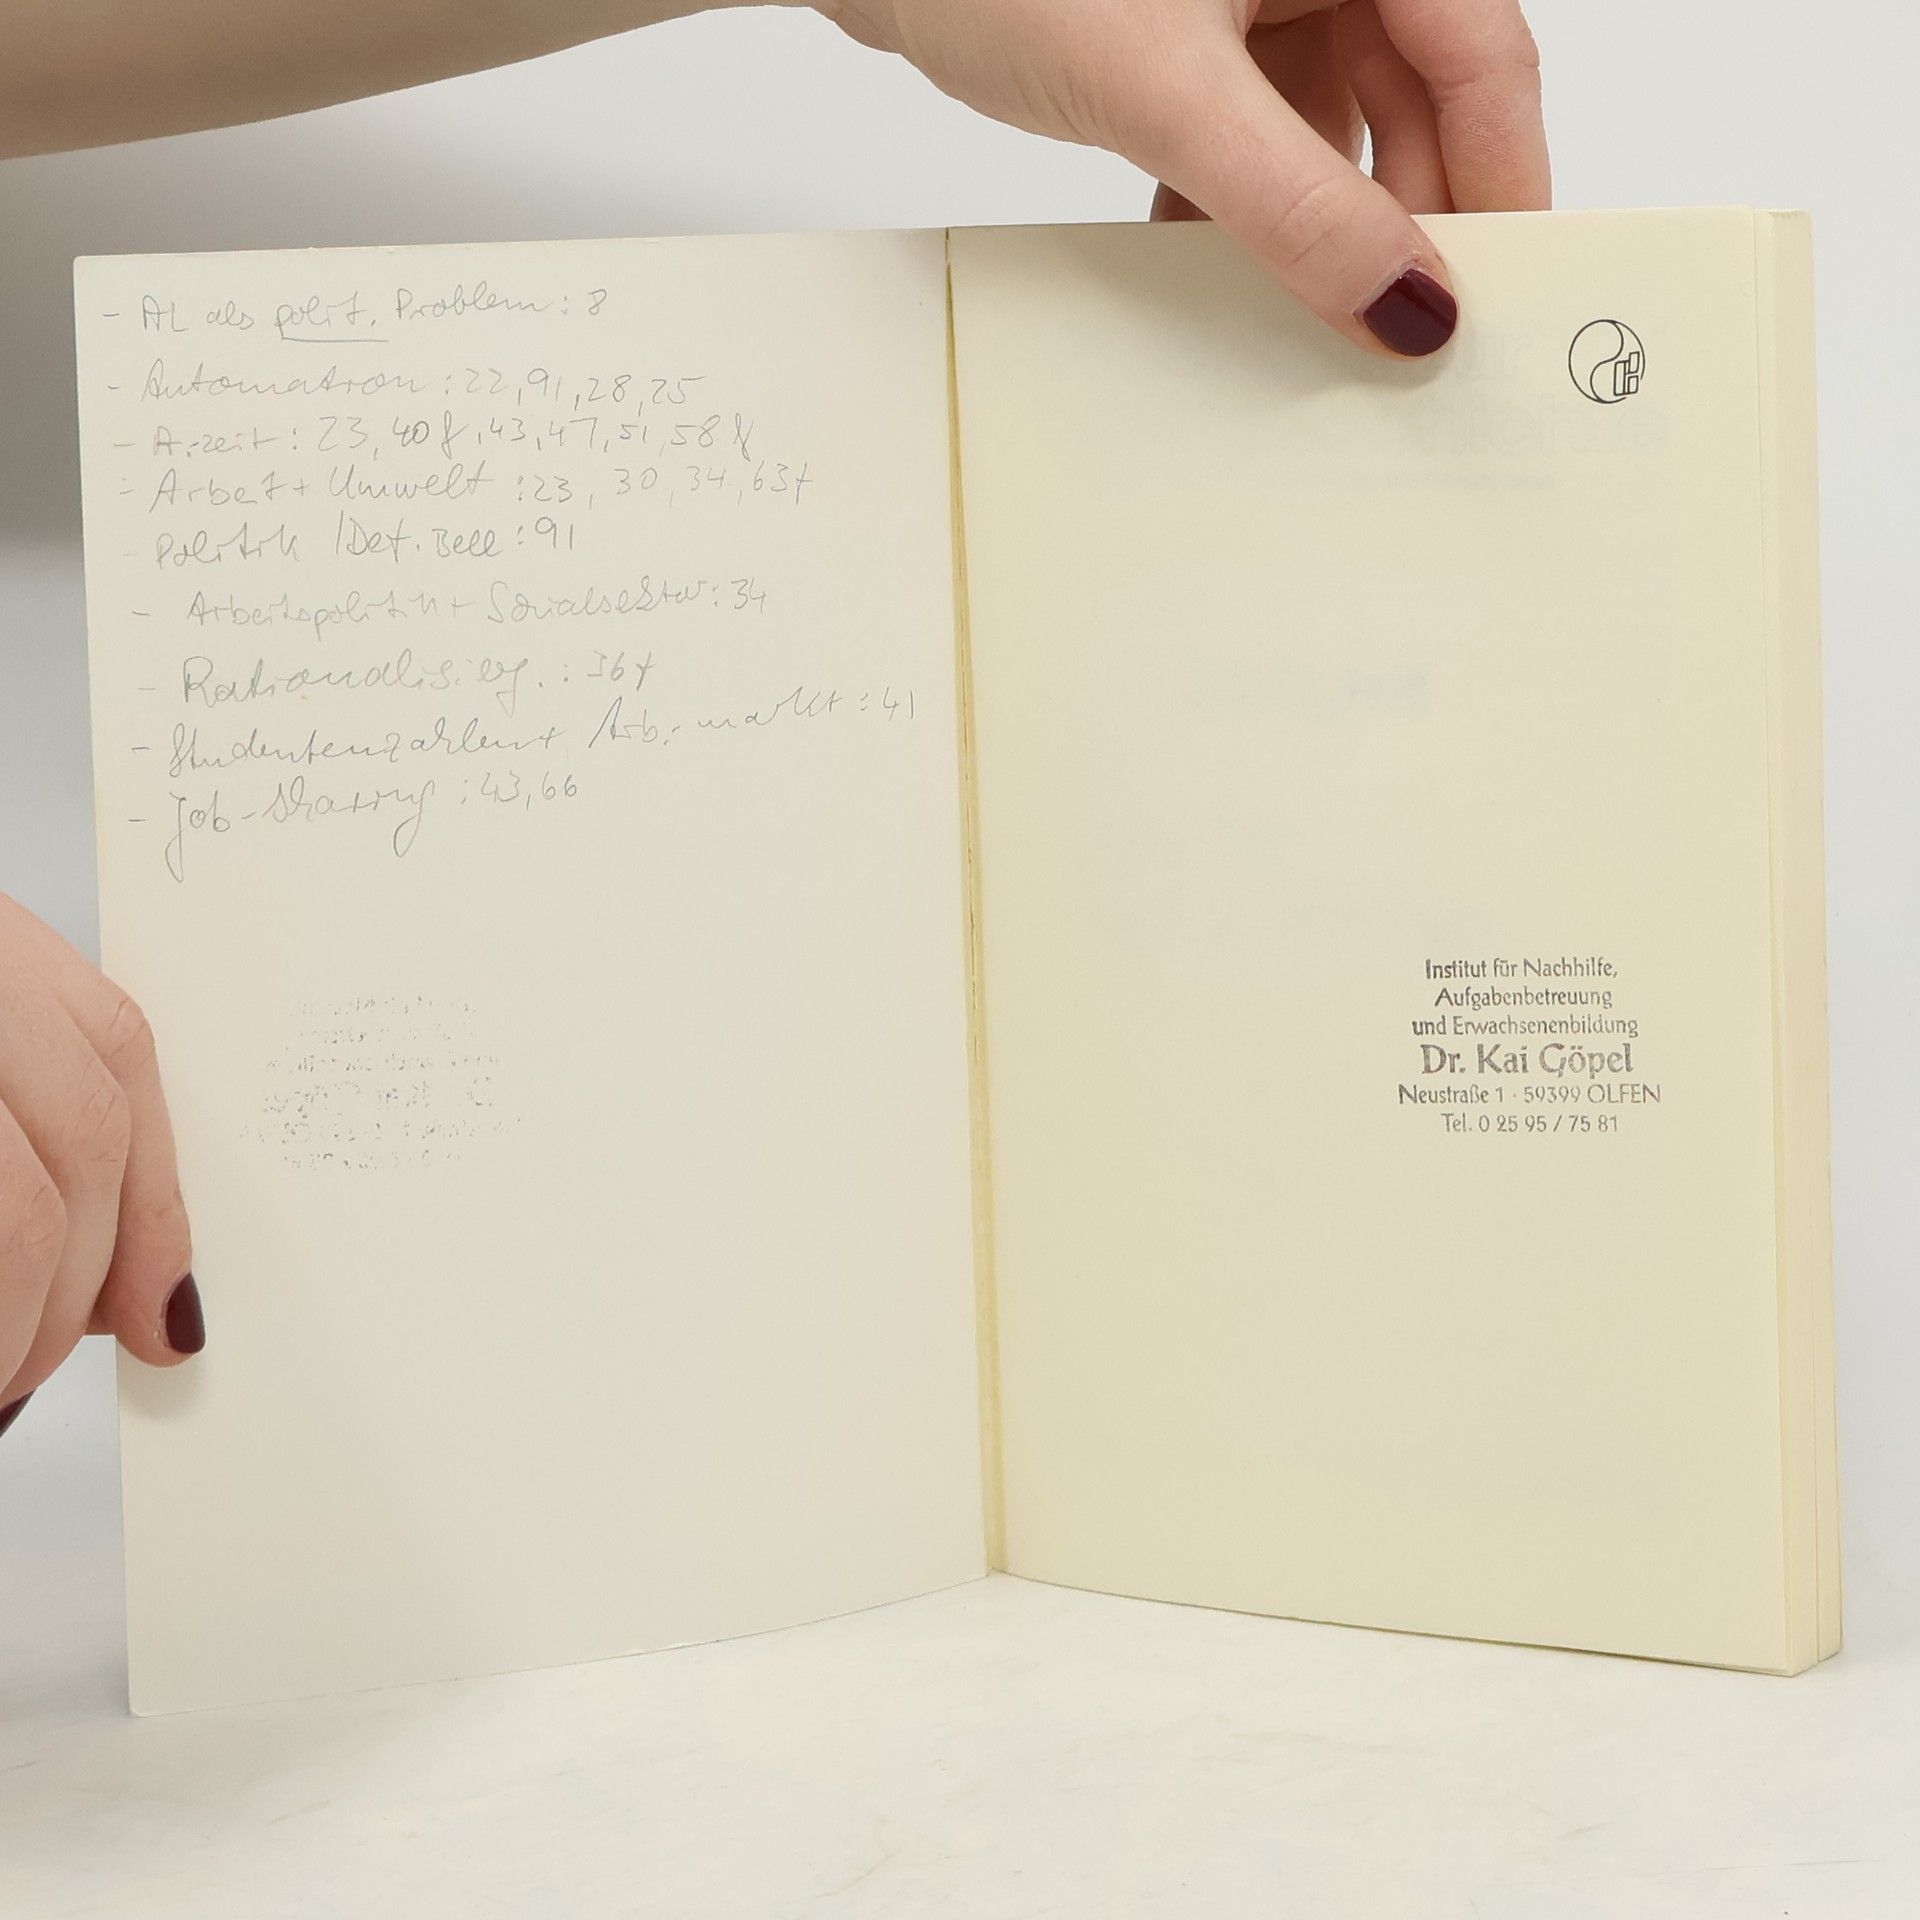 - AL als polit. Problem: 8
- Automation: 22, 91, 28, 25
- A.zeit: 23, 40 f, 43, 47, 51, 58 f
- Arbeit + Umwelt: 23, 30, 34, 63f
- Politik / Def. : 91
- Arbeitspolitik + Sozialsektor: 34
- : 36f
- Studentenzahlen + Arb.-markt: 41
- Job-Sharing: 43, 66
Institut für Nachhilfe,
Aufgabenbetreuung
und Erwachsenenbildung
Dr. Kai Göpel
Neustraße 1 · 59399 OLFEN
Tel. 0 25 95 / 75 81